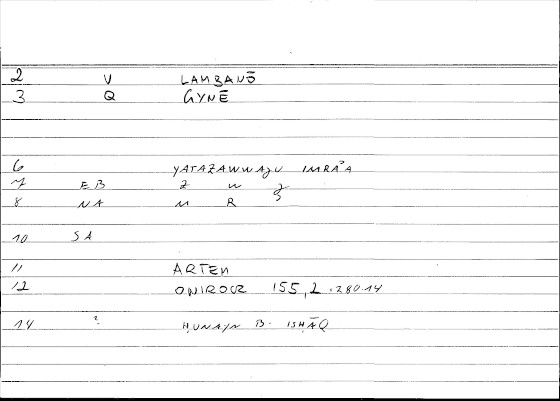 2 V LAMBANŌ
3 Q GYNĒ
6 YATAZAWWAǦU IMRAʾA
7 EB Z W Ǧ
8 NA M R ʾ
10 SA
11 ARTEM
12 ONIROCR 155,2 .280.14
14 ? ḤUNAYN B. ISḤĀQ